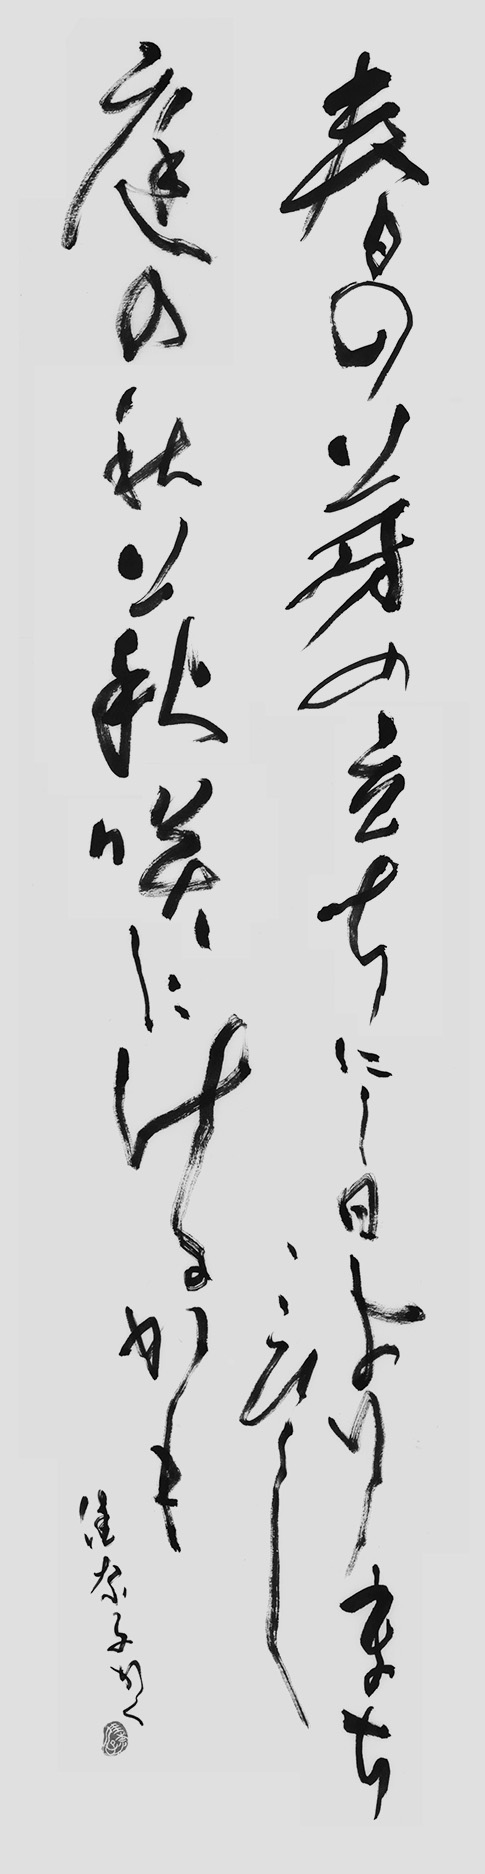 春の芽の立ちにし日よりまち
こひし
庭の秋萩咲にけるかも
佳奈子かく